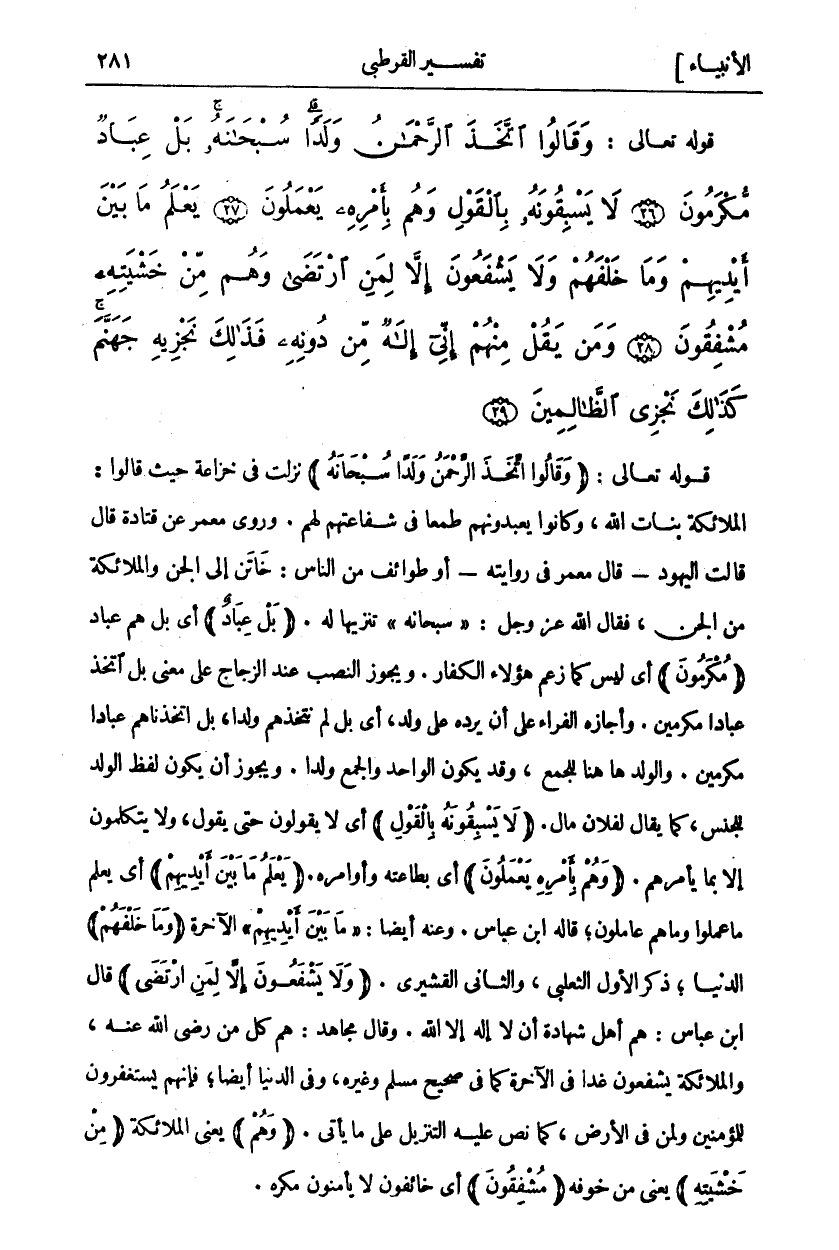 الأنبياء ]
تفسير القرطبى
٢٨١
قوله تعالى : وَقَالُوا ٱتَّخَذَ ٱلرَّحْمَـٰنُ وَلَدًا ۗ سُبْحَـٰنَهُۥ ۚ بَلْ عِبَادٌ
مُّكْرَمُونَ ﴿٢٦﴾ لَا يَسْبِقُونَهُۥ بِٱلْقَوْلِ وَهُم بِأَمْرِهِۦ يَعْمَلُونَ ﴿٢٧﴾ يَعْلَمُ مَا بَيْنَ
أَيْدِيهِمْ وَمَا خَلْفَهُمْ وَلَا يَشْفَعُونَ إِلَّا لِمَنِ ٱرْتَضَىٰ وَهُم مِّنْ خَشْيَتِهِۦ
مُشْفِقُونَ ﴿٢٨﴾ وَمَن يَقُلْ مِنْهُمْ إِنِّىٓ إِلَـٰهٌ مِّن دُونِهِۦ فَذَٰلِكَ نَجْزِيهِ جَهَنَّمَ ۚ
كَذَٰلِكَ نَجْزِى ٱلظَّـٰلِمِينَ ﴿٢٩﴾
قوله تعالى : ﴿ وَقَالُوا اتَّخَذَ الرَّحْمَنُ وَلَدًا سُبْحَانَهُ ﴾ نزلت فى خزاعة حيث قالوا :
الملائكة بنات الله ، وكانوا يعبدونهم طمعا فى شفاعتهم لهم . وروى معمر عن قتادة قال
قالت اليهود — قال معمر فى روايته — أو طوائف من الناس : خَاتَن إلى الجن والملائكة
من الجن ، فقال الله عز وجل : « سبحانه » تنزيها له . ﴿ بَلْ عِبَادٌ ﴾ أى بل هم عباد
﴿ مُكْرَمُونَ ﴾ أى ليس كما زعم هؤلاء الكفار . ويجوز النصب عند الزجاج على معنى بل ٱتخذ
عبادا مكرمين . وأجازه الفراء على أن يرده على ولد، أى بل لم نتخذهم ولدا، بل اتخذناهم عبادا
مكرمين . والولد ها هنا للجمع ، وقد يكون الواحد والجمع ولدا . ويجوز أن يكون لفظ الولد
للجنس، كما يقال لفلان مال. ﴿ لَا يَسْبِقُونَهُ بِالْقَوْلِ ﴾ أى لا يقولون حتى يقول، ولا يتكلمون
إلا بما يأمرهم . ﴿ وَهُمْ بِأَمْرِهِ يَعْمَلُونَ ﴾ أى بطاعته وأوامره. ﴿ يَعْلَمُ مَا بَيْنَ أَيْدِيهِمْ ﴾ أى يعلم
ماعملوا وماهم عاملون؛ قاله ابن عباس . وعنه أيضا : « مَا بَيْنَ أَيْدِيهِمْ» الآخرة ﴿وَمَا خَلْفَهُمْ﴾
الدنيا ؛ ذكر الأول الثعلبى ، والثانى القشيرى . ﴿ وَلَا يَشْفَعُونَ إِلَّا لِمَنِ ارْتَضَى ﴾ قال
ابن عباس : هم أهل شهادة أن لا إله إلا الله . وقال مجاهد : هم كل من رضى الله عنه ،
والملائكة يشفعون غدا فى الآخرة كما فى صحيح مسلم وغيره، وفى الدنيا أيضا؛ فإنهم يستغفرون
للؤمنين ولمن فى الأرض ، كما نص عليه التنزيل على ما يأتى . ﴿ وَهُمْ ﴾ يعنى الملائكة ﴿ مِنْ
خَشْيَتِهِ ﴾ يعنى من خوفه ﴿ مُشْفِقُونَ ﴾ أى خائفون لا يأمنون مكره .